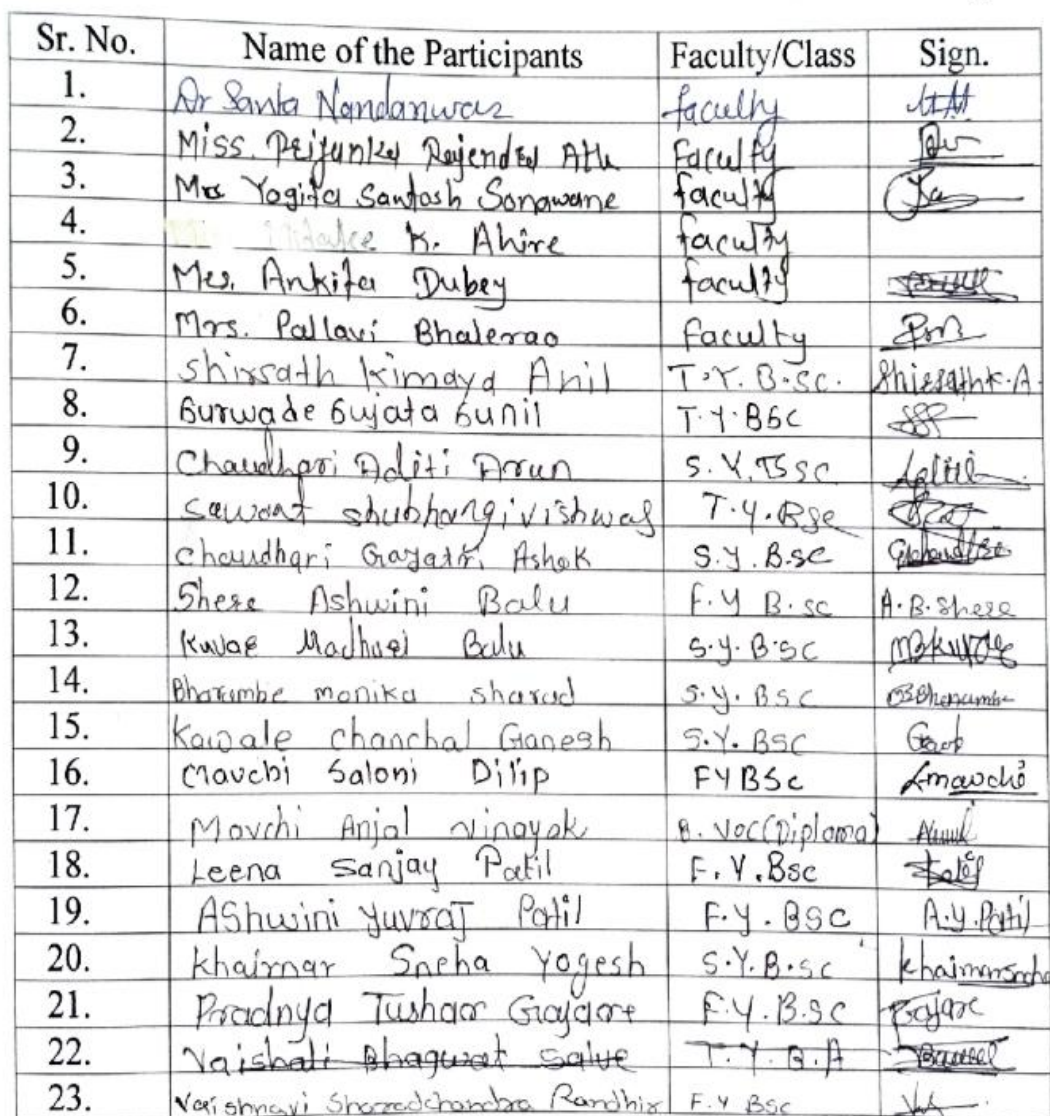 Sr. No. Name of the Participants Faculty/Class Sign.
1. Dr Santa Nandanwar faculty
2. Miss. Faculty
3. Mrs Yogita Santosh Sonawane faculty
4. K. Ahire faculty
5. Mrs. Ankita Dubey faculty
6. Mrs. Pallavi Bhalerao faculty
7. Shirsath Kimaya Anil T.Y. B.Sc. Shirsath K.A.
8. Surwade Sujata Sunil T.Y.BSC
9. Chaudhari Aditi Arun S.Y.BSsc.
10. Sawant shubhangi vishwas T.Y.Bsc
11. Chaudhari Gayatri Ashok S.Y.B.sc
12. Shere Ashwini Balu F.Y B.sc A.B.Shere
13. Kuvar Madhuri Balu S.y.B.sc
14. Bharambe monika sharad S.y. BSC
15. Kawale chanchal Ganesh S.Y. BSC
16. Mavchi Saloni Dilip FYBSc
17. Movchi Anjal vinayak B. Voc(Diploma)
18. Leena Sanjay Patil F.Y.Bsc
19. AShwini Yuvraj Patil F.Y.BSC A.y.Patil
20. Khairnar Sneha Yogesh S.Y.B.sc
21. Pradnya Tushar Gajare F.Y.B.sc Gajare
22. Vaishali Bhagwat Salve T.Y.B.A
23. Vaishnavi Sharadchandra Randhir F.Y BSC